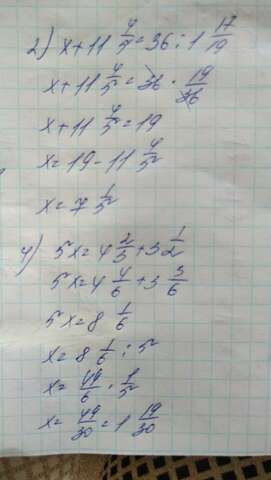 2) x+11 4/5 = 36 : 1 17/19
x+11 4/5 = 36 · 19/36
x+11 4/5 = 19
x = 19 - 11 4/5
x = 7 1/5
4) 5x = 4 2/3 + 3 1/2
5x = 4 4/6 + 3 3/6
5x = 8 1/6
x = 8 1/6 : 5
x = 49/6 · 1/5
x = 49/30 = 1 19/30